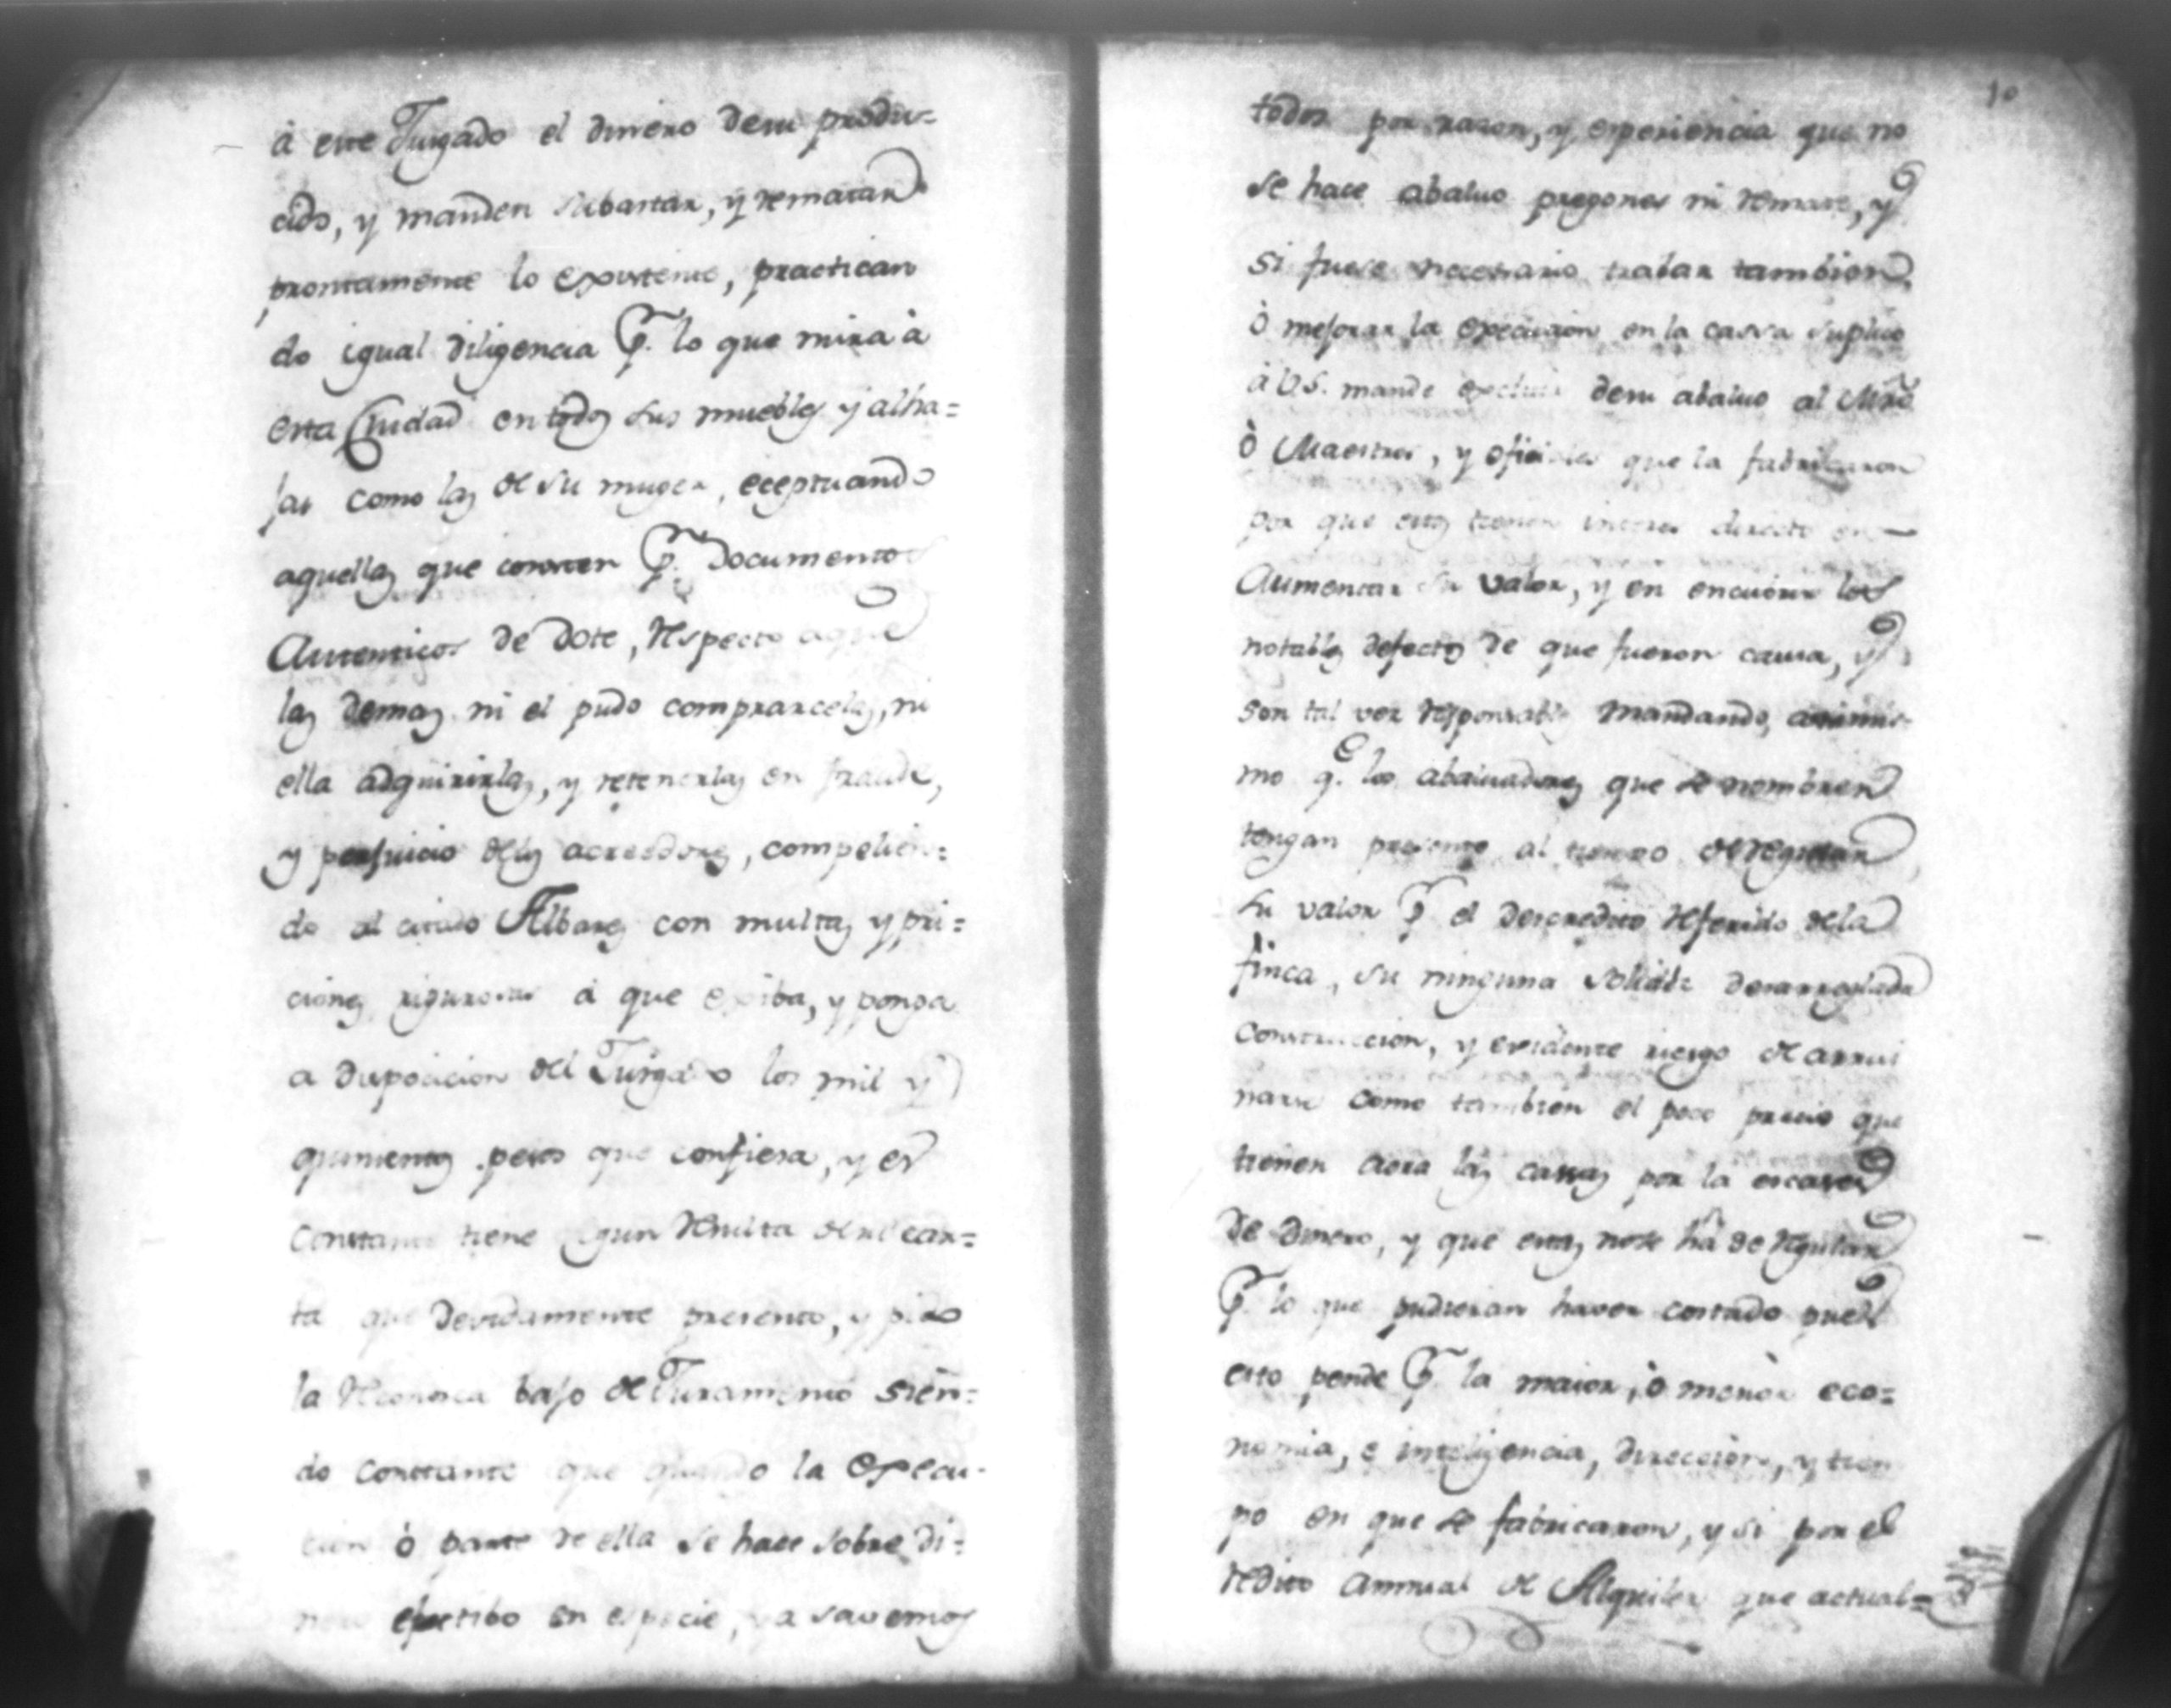 à este Jusgado el dinero desu produ=
cido, y manden subastar, y rematar
prontamente lo existente, practican
do igual diligencia p.r lo que mira à
esta Ciudad en todos sus muebles y alha=
jas como las de su muger, eceptuando
aquellas que consten p.r Documentos
Autenticos de Dote, respecto aque
las demas ni el pudo comprarcelas, ni
ella adquirirlas, y retenerlas en fraude,
y perjuicio delos acreedores, compelien=
do al citado Albares con multas y pri=
ciones rigurosas á que exiba, y ponga
a disposicion del Jusgado los mil y
quinientos pesos que confiesa, y es
constante tiene segun resulta de su car=
ta que devidamente presento, y pido
la reconosca bajo de Juramento sien=
do constante que quando la execu-
cion ò parte de ella se hace sobre di=
nero efectibo en especie, ya savemos
10
todos por razon, y experiencia que no
se hace abaluo pregones ni remate, y
si fuese necesario trabar tambien
ò mejorar la execucion en la cassa suplico
à US. mande excluir desu abaluo al Mro
ò Maestros, y oficiales que la fabricaron
por que estos tienen interes directo en
Aumentar su valor, y en encubrir los
notables defectos de que fueron causa, y
son tal vez responsables mandando, asimis-
mo q.e los abaluadores que se nombren
tengan presente al tiempo de regular
su valor p.r el descredito referido dela
finca, su ninguna solides desarreglada
construccion, y evidente riesgo de arrui
narse como tambien el poco precio que
tienen aora las casas por la escases
de dinero, y que estas nose ha de regular
p.r lo que pudieran haver costado pues
esto pende p.r la maior, ò menòr eco=
nomia, e inteligencia, direccion, y tiem
po en que se fabricaron, y si por el
redito annual de Alquiler que actual=